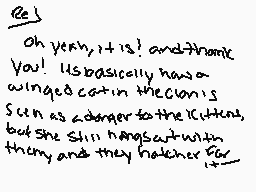 Re)
Oh yeah, it is! and thank
you! Its basically how a
winged cat in the clan is
seen as a danger to the kittens,
but she still hangs out with
them, and they hate her for
it